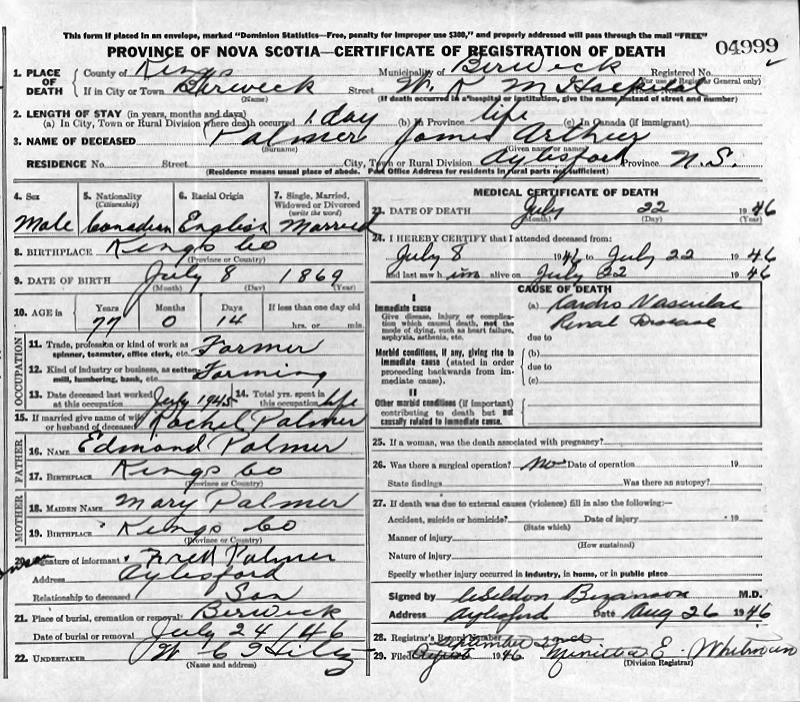 This form if placed in an envelope, marked "Dominion Statistics—Free, penalty for improper use $300," and properly addressed will pass through the mail "FREE"
PROVINCE OF NOVA SCOTIA—CERTIFICATE OF REGISTRATION OF DEATH 04999
1. PLACE OF DEATH County of Kings Municipality of Berwick Registered No.
If in City or Town Berwick Street W. K M Hospital (For use of Registrar General only)
(Name) (If death occurred in a hospital or institution, give the name instead of street and number)
2. LENGTH OF STAY (in years, months and days)
(a) In City, Town or Rural Division where death occurred 1 day (b) In Province life (c) In Canada (if immigrant)
3. NAME OF DECEASED Palmer James Arthur
(Surname) (Given name or names)
RESIDENCE No. Street City, Town or Rural Division Aylesford Province N.S.
(Residence means usual place of abode. Post Office Address for residents in rural parts not sufficient)
4. Sex 5. Nationality (Citizenship) 6. Racial Origin 7. Single, Married, Widowed or Divorced (write the word)
Male Canadian English Married
8. BIRTHPLACE Kings Co
(Province or Country)
9. DATE OF BIRTH July 8 1869
(Month) (Day) (Year)
10. AGE in Years Months Days If less than one day old
77 0 14 hrs. or min.
OCCUPATION
11. Trade, profession or kind of work as spinner, teamster, office clerk, etc. Farmer
12. Kind of industry or business, as cotton mill, lumbering, bank, etc. Farming
13. Date deceased last worked at this occupation July 1945 14. Total yrs. spent in this occupation life
15. If married give name of wife or husband of deceased Rachel Palmer
FATHER
16. NAME Edmond Palmer
17. BIRTHPLACE Kings Co
(Province or Country)
MOTHER
18. MAIDEN NAME Mary Palmer
19. BIRTHPLACE Kings Co
(Province or Country)
20. Signature of informant Fred Palmer
Address Aylesford
Relationship to deceased Son
21. Place of burial, cremation or removal Berwick
Date of burial or removal July 24/46
22. UNDERTAKER W C Hiltz
(Name and address)
MEDICAL CERTIFICATE OF DEATH
23. DATE OF DEATH July 22 1946
(Month) (Day) (Year)
24. I HEREBY CERTIFY that I attended deceased from:
July 8 1946 to July 22 1946
and last saw him alive on July 22 1946
CAUSE OF DEATH
I
Immediate cause (a) Cardio Vascular
Renal Disease
Give disease, injury or complication which caused death, not the mode of dying, such as heart failure, asphyxia, asthenia, etc.
due to
Morbid conditions, if any, giving rise to immediate cause (stated in order proceeding backwards from immediate cause). (b)
due to
(c)
II
Other morbid conditions (if important) contributing to death but not causally related to immediate cause.
25. If a woman, was the death associated with pregnancy?
26. Was there a surgical operation? no Date of operation 19
State findings Was there an autopsy?
27. If death was due to external causes (violence) fill in also the following:—
Accident, suicide or homicide? Date of injury 19
(State which)
Manner of injury
(How sustained)
Nature of injury
Specify whether injury occurred in industry, in home, or in public place
Signed by Weldon Bezanson M.D.
Address Aylesford Date Aug 26 1946
28. Registrar's Record Number
29. Filed August September 1946 E. Whitman
(Division Registrar)